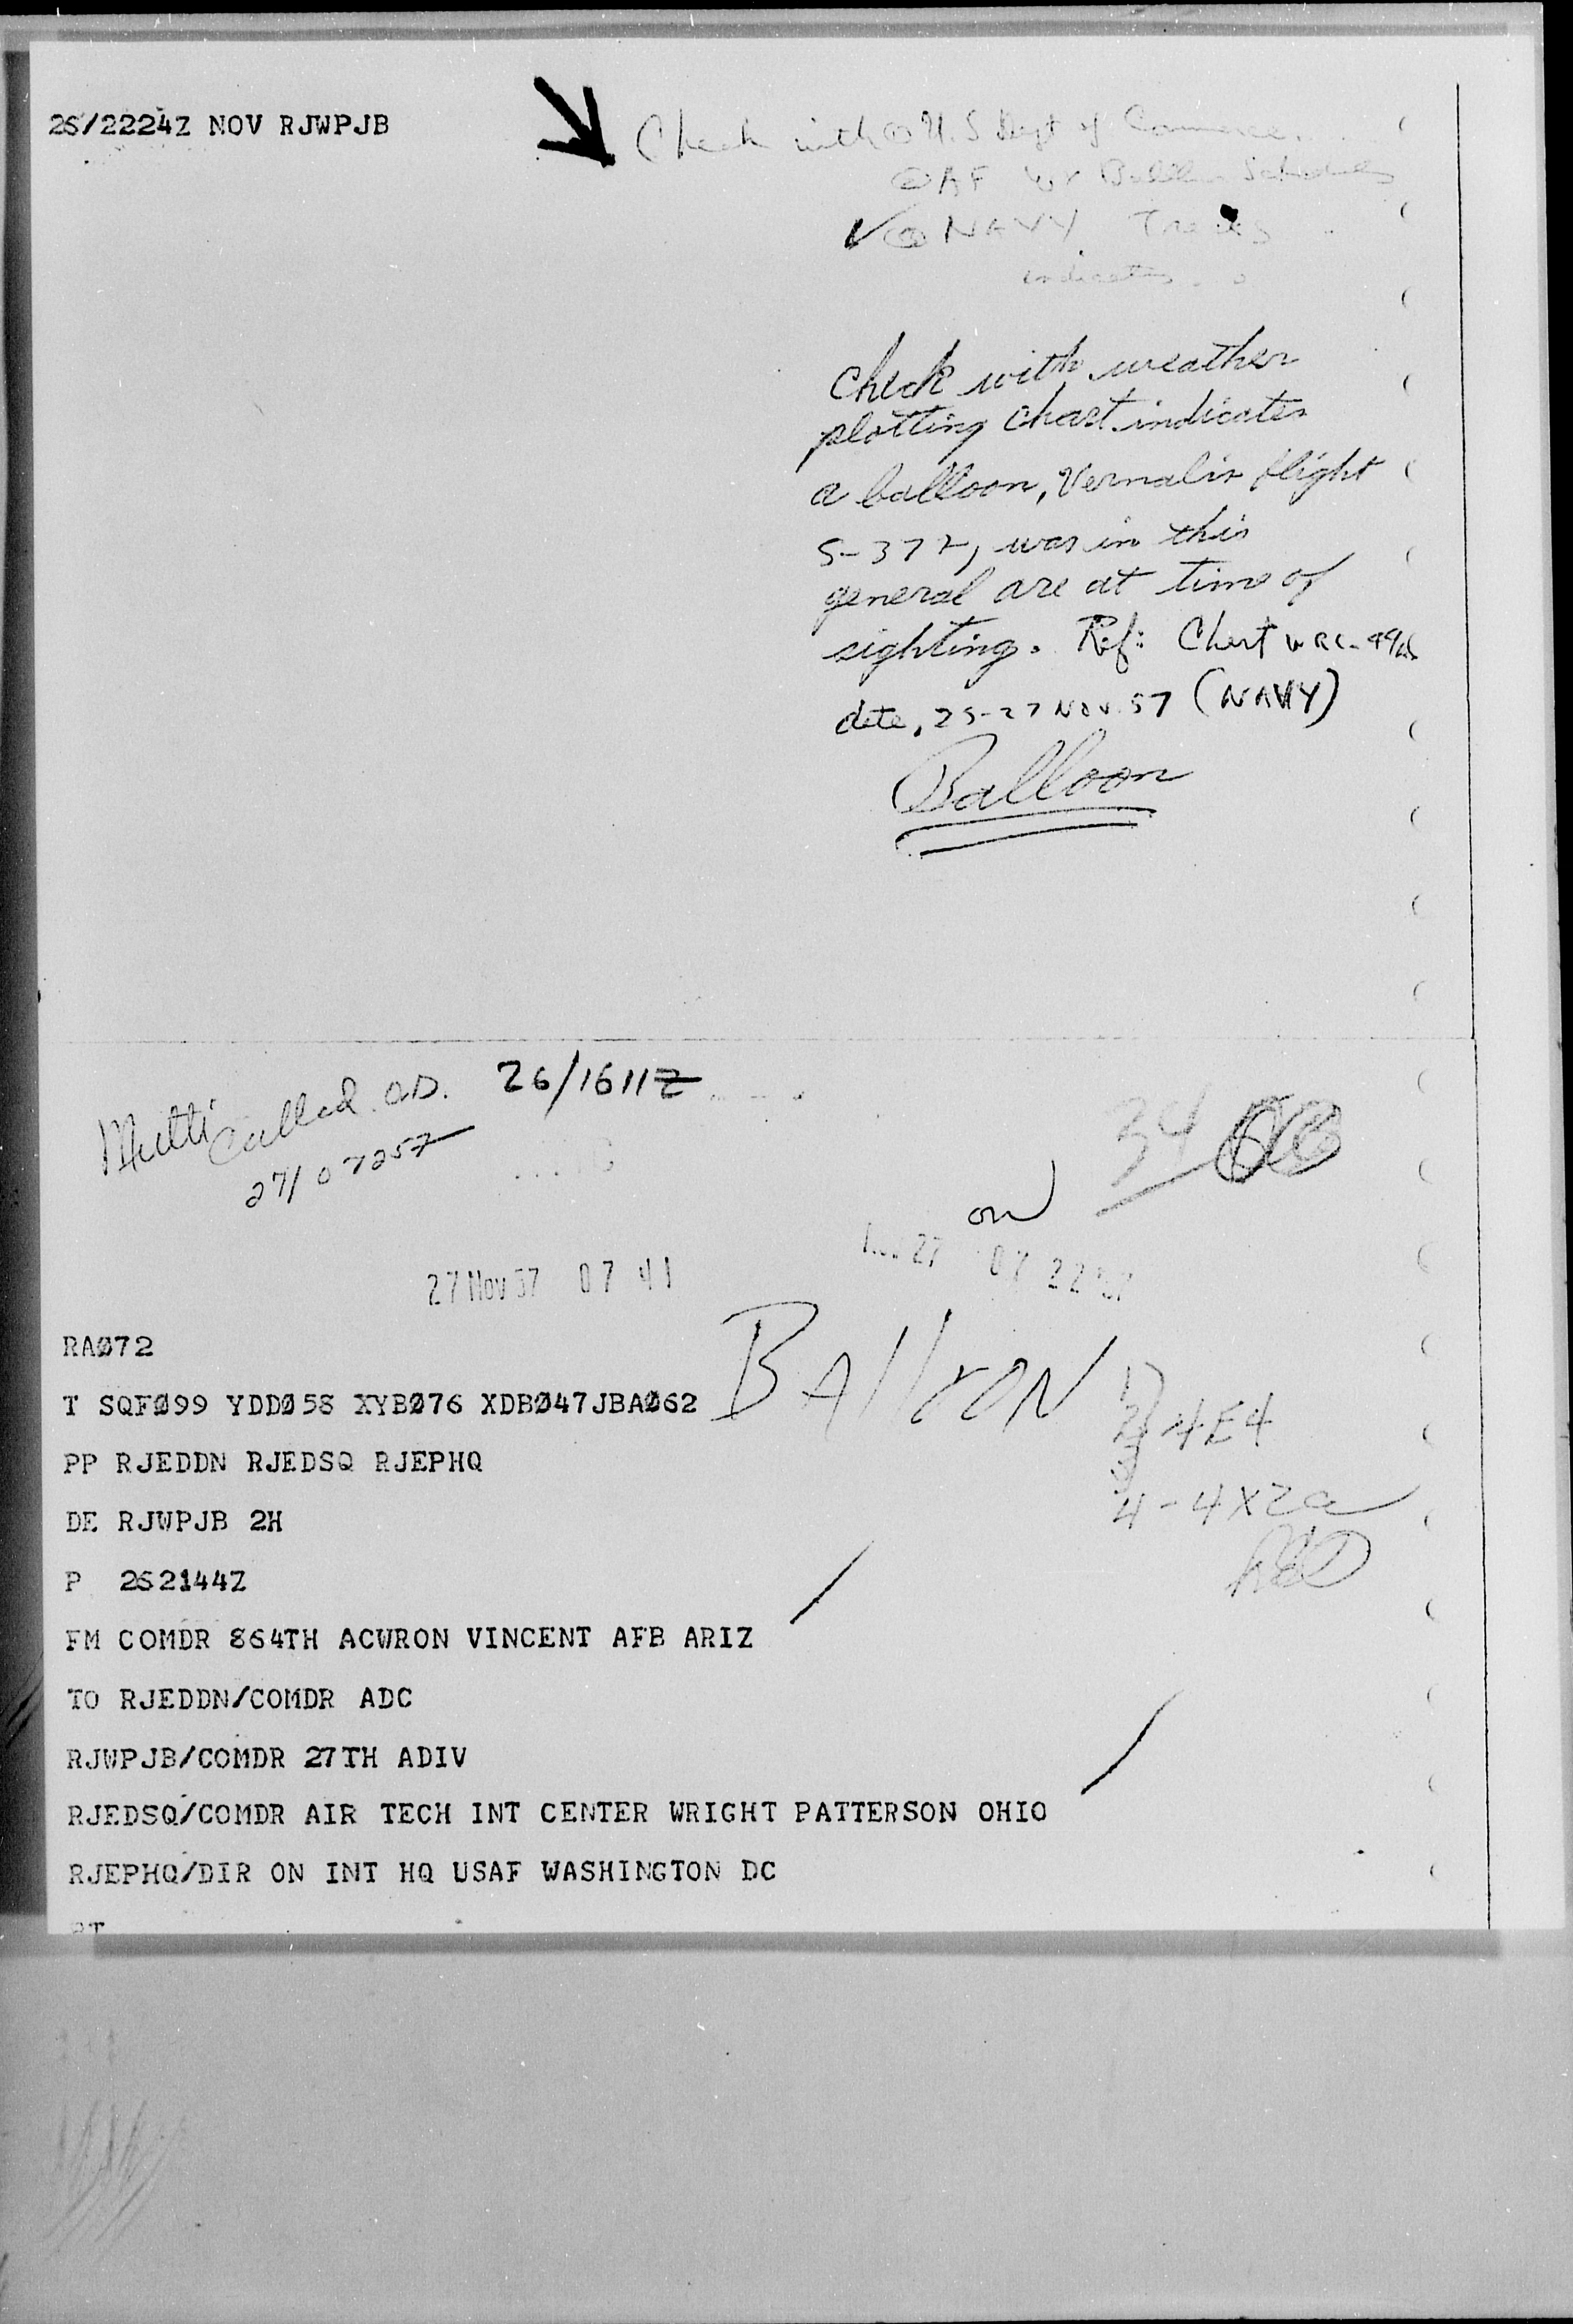 26/2224Z NOV RJWPJB
Check with ① U.S Dept of Commerce
② AF Wx Balloon Schedules
✓③ NAVY Tracks
indicates
Check with weather
plotting chart indicates
a balloon, Vernalis flight
S-372, was in this
general are at time of
sighting. Ref: Chart WRC-
date, 25-27 NOV 57 (NAVY)
Balloon
Multi called OD. 26/1611Z
27/0725Z
34
27 Nov 57 07 41
27 07 22 57
RAØ72
T SQFØ99 YDDØ58 XYBØ76 XDBØ47JBAØ62
BAlloON
1)
2) 4E4
3)
4-4X2a
PP RJEDDN RJEDSQ RJEPHQ
DE RJWPJB 2H
P 262144Z
FM COMDR 864TH ACWRON VINCENT AFB ARIZ
TO RJEDDN/COMDR ADC
RJWPJB/COMDR 27TH ADIV
RJEDSQ/COMDR AIR TECH INT CENTER WRIGHT PATTERSON OHIO
RJEPHQ/DIR ON INT HQ USAF WASHINGTON DC